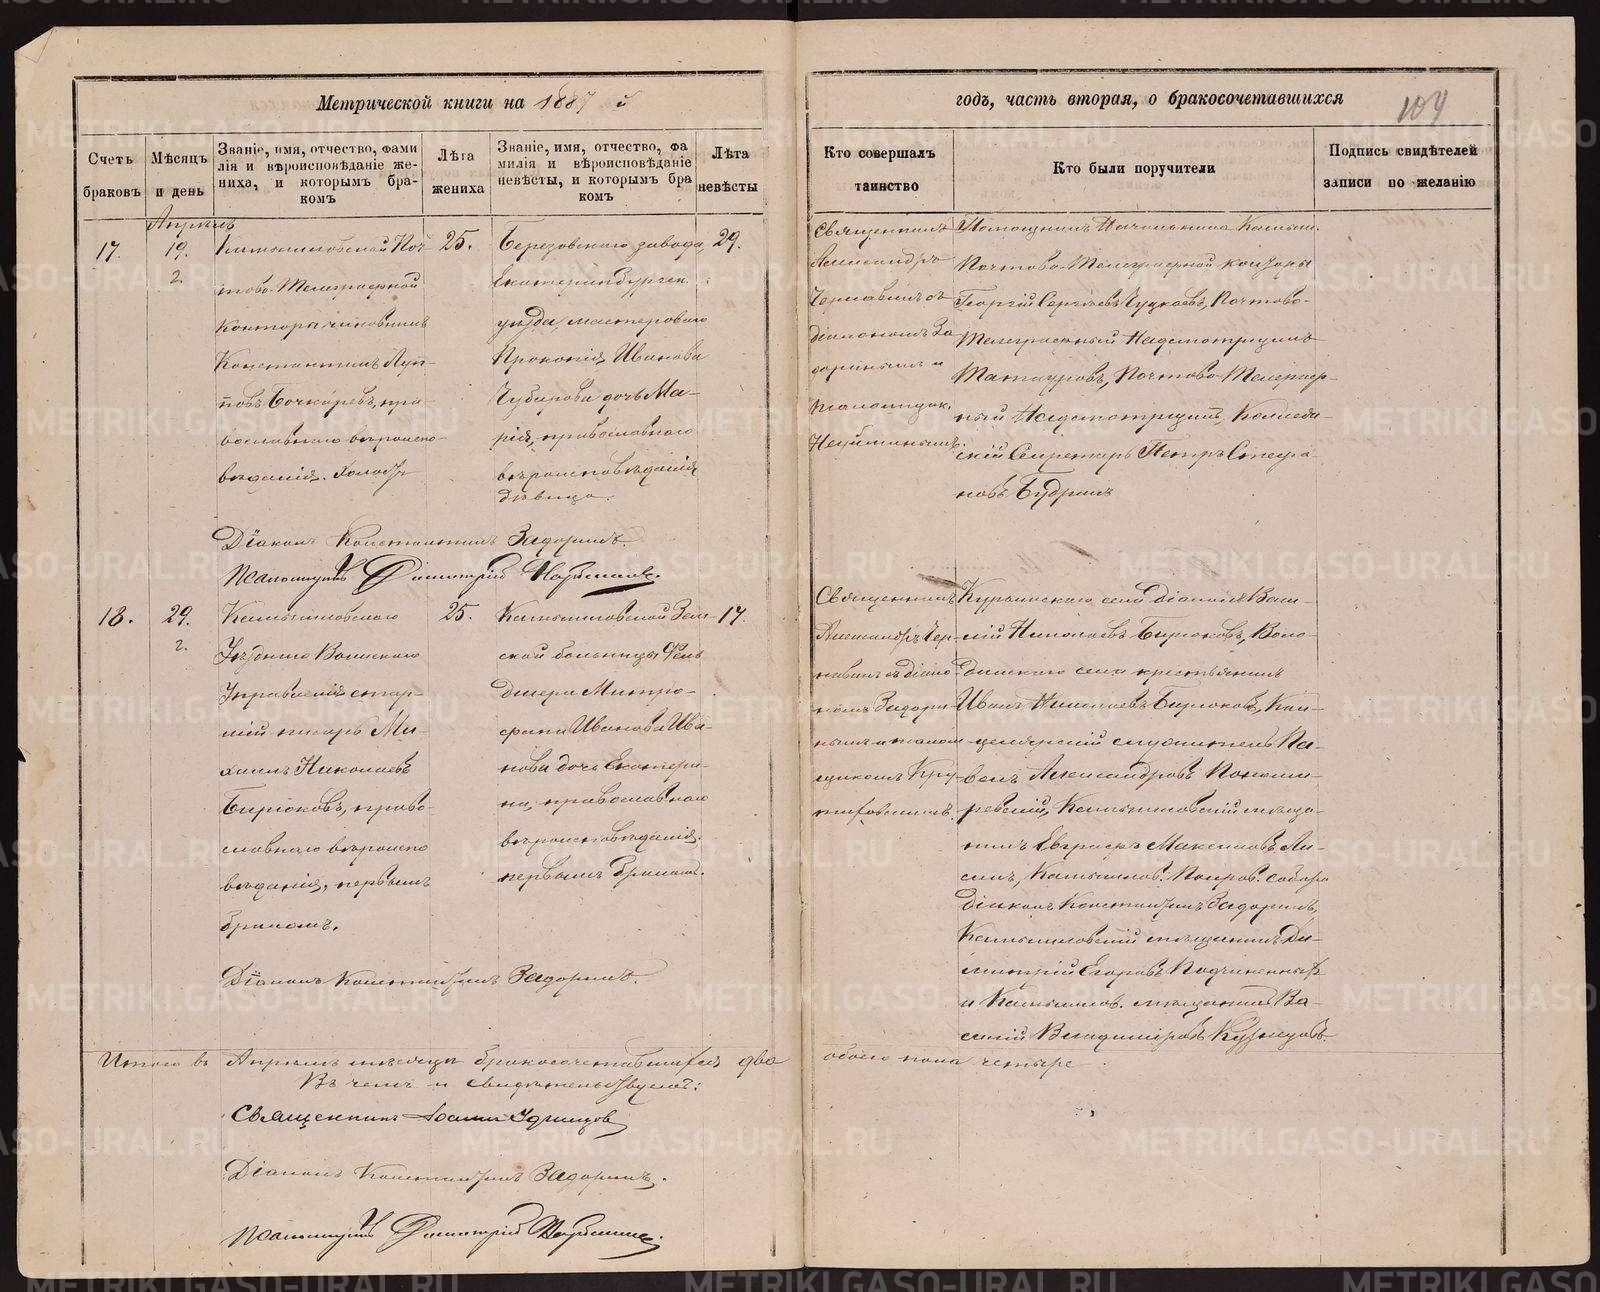 Метрической книги на 1887 й
годъ, часть вторая, о бракосочетавшихся
104
Счетъ браковъ
Мѣсяцъ и день
Званіе, имя, отчество, фами
лія и вѣроисповѣданіе же-
ниха, и которымъ бра-
комъ
Лѣта жениха
Званіе, имя, отчество, фа
милія и вѣроисповѣданіе
невѣсты, и которымъ бра
комъ
Лѣта невѣсты
Кто совершалъ таинство
Кто были поручители
Подпись свидѣтелей
записи по желанію
Апрѣль
17.
19.
2.
Камышловской Поч-
тово-Телеграфной
Конторы чиновникъ
Константинъ
Бочкаревъ, пра-
вославнаго вѣроиспо-
вѣданія. Холостъ
25.
Березовскаго завода,
Екатеринбургск.
уѣзда, мастероваго
Прокопія Иванова
Чубарова дочь Ма-
рія, православнаго
вѣроисповѣданія
дѣвица.
29.
Священникъ
Александръ
Чернавинъ съ
діакономъ За
доринымъ и
псаломщик.
Помощникъ Начальника Камыш.
Почтово-Телеграфной конторы
Георгій Сергѣевъ Почтово-
Телеграфный Надсмотрщикъ
Татауровъ, Почтово-Телеграф-
ный Надсмотрщикъ, Коллеж-
скій Секретарь Петръ Стефа-
новъ Будринъ
Діаконъ Константинъ Задоринъ.
Псаломщикъ Димитрій
18.
29.
2.
Камышловскаго
Уѣзднаго Воинскаго
Управленія стар-
шій писарь Ми-
хаилъ Николаевъ
Бирюковъ, право-
славнаго вѣроиспо
вѣданія, первымъ
бракомъ.
25.
Камышловской Зем-
ской больницы Фель
дшера Митро-
фана Иванова Ива-
нова дочь Екатери-
на, православнаго
вѣроисповѣданія.
первымъ бракомъ.
17.
Священникъ
Александръ Чер-
навинъ съ діако-
номъ Задори-
нымъ и псалом-
щикомъ
Курьинскаго села діаконъ Васи-
лій Николаевъ Бирюковъ,
села крестьянинъ
Иванъ Николаевъ Бирюковъ, Кан-
целярскій служитель Па-
велъ Александровъ
Камышловскій мѣща-
нинъ Евграфъ Максимовъ
Камышлов. Покров. собора
Діаконъ Константинъ Задоринъ,
Камышловскій мѣщанинъ Ди-
митрій Егоровъ
и Камышлов. мѣщанинъ Ва-
силій Владиміровъ Кузнецовъ.
Діаконъ Константинъ Задоринъ.
Итого въ Апрѣлѣ мѣсяцѣ бракосочетавшихся два
обоего пола четыре
Въ чемъ и свидѣтельствуютъ:
Священникъ Іоаннъ Удинцовъ
Діаконъ Константинъ Задоринъ.
Псаломщикъ Димитрій
METRIKI.GASO-URAL.RU